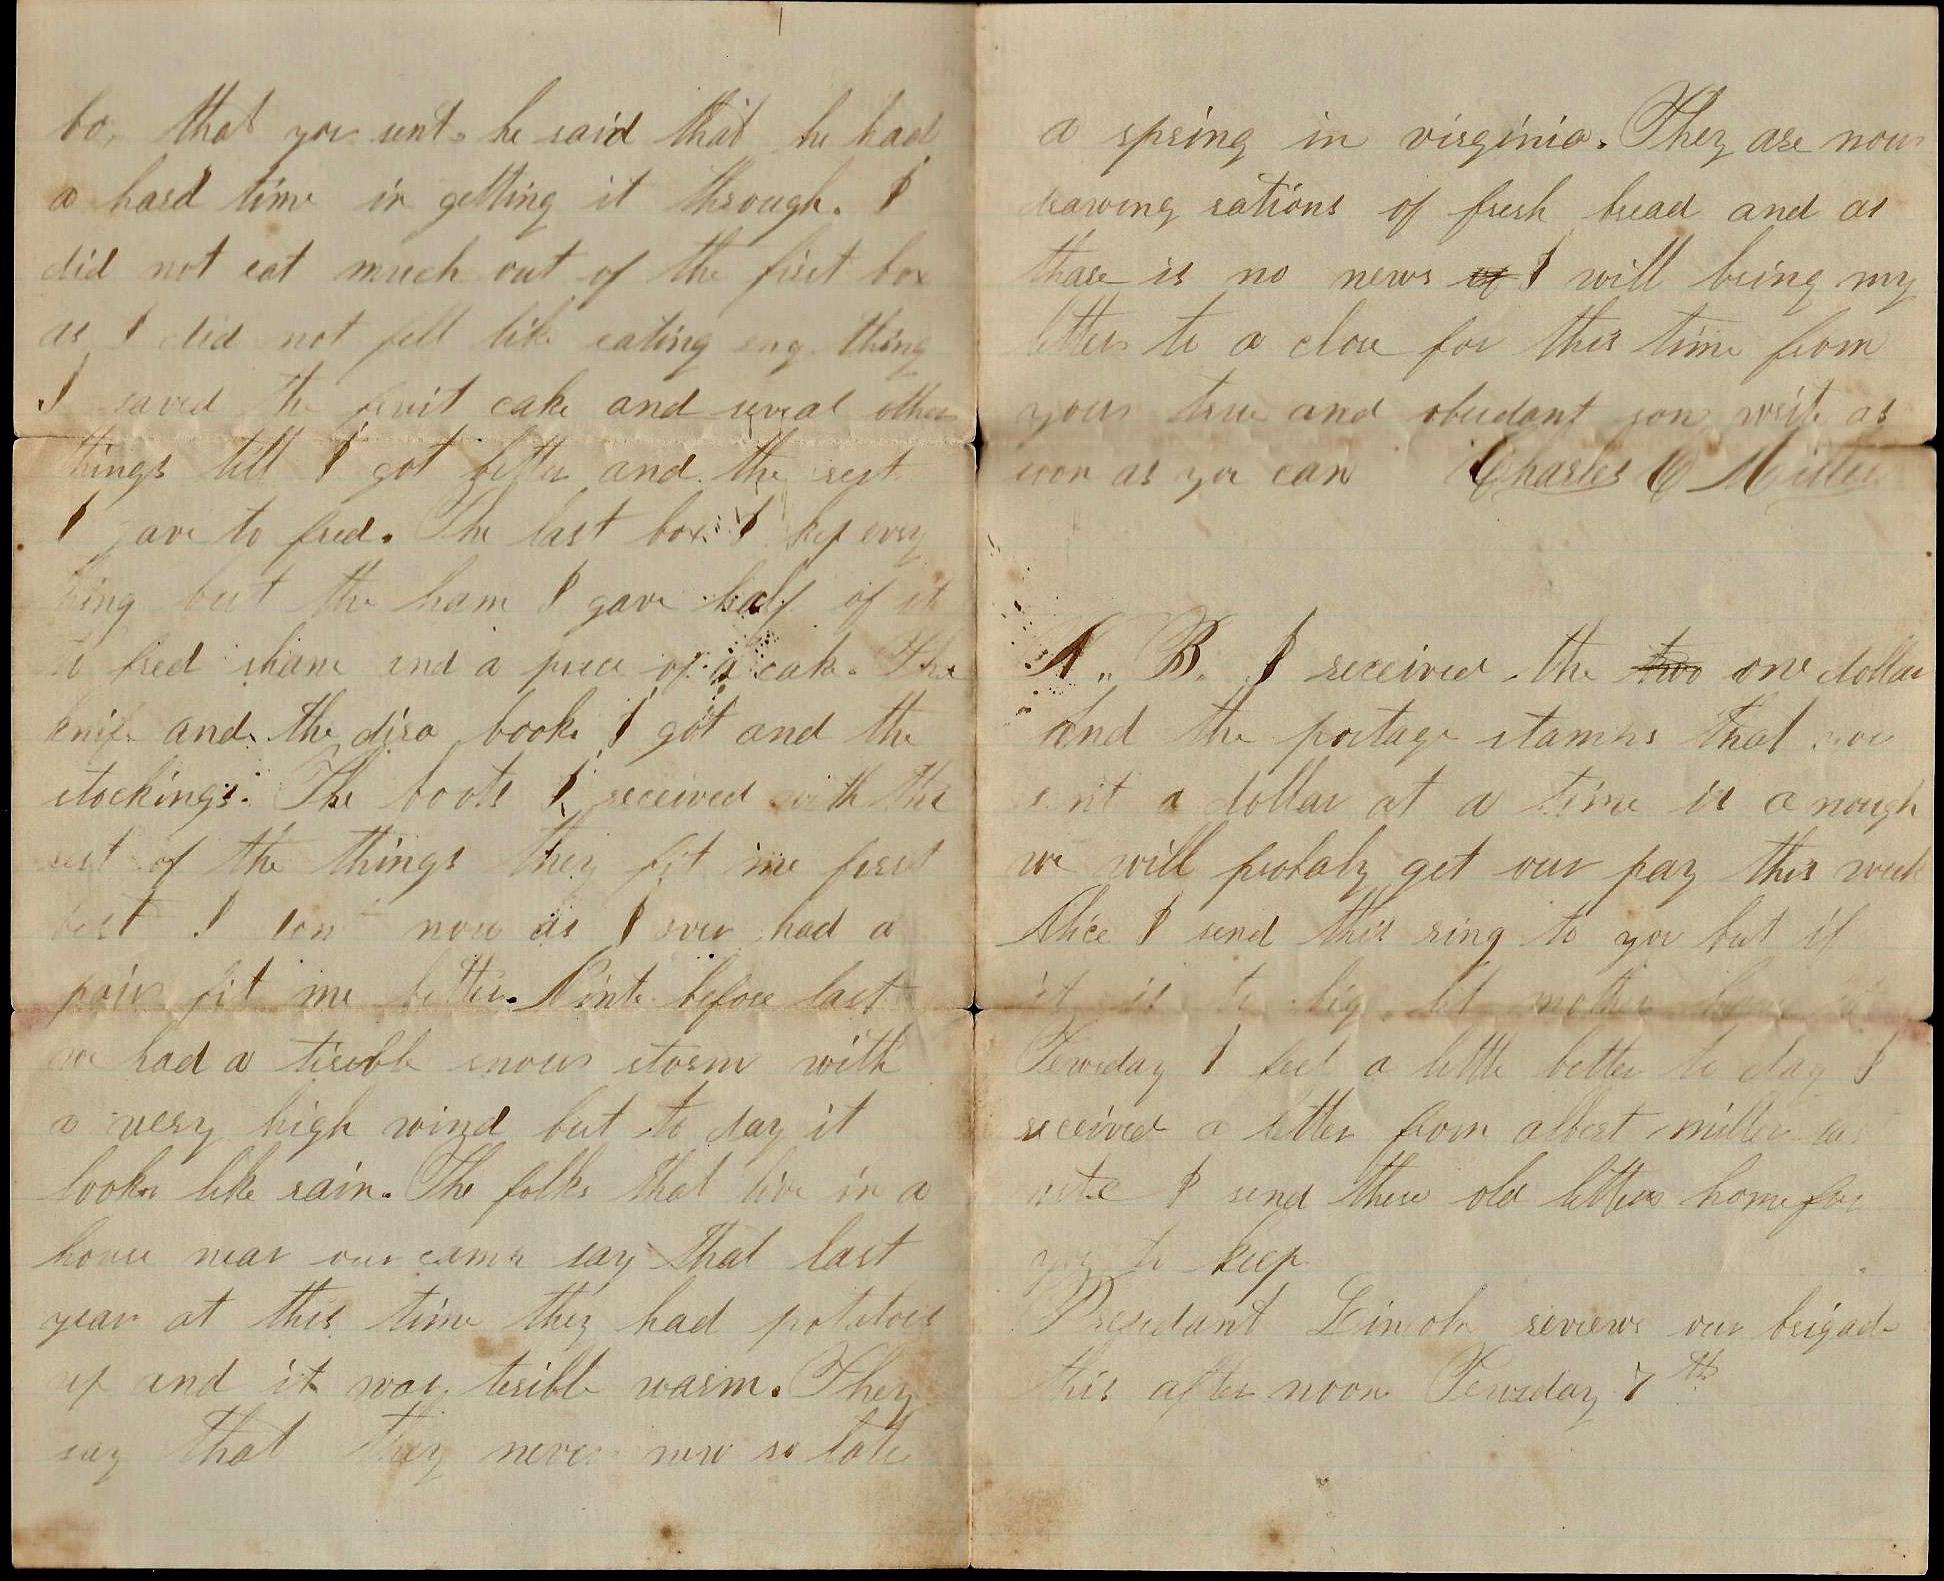 box that you sent. he said that he had
a hard time in getting it through. I
did not eat much out of the first box
as I did not fell like eating eny thing
I saved the fruit cake and several other
things till I got better and the rest
I gave to fred. The last box I kep every
thing but the ham I gave half of it
to fred shane and a piece of a cake. The
knife and the book I got and the
stockings. The boots I received with the
rest of the things they fit me first
best I dont now as I ever had a
pair fit me better. Ninte before last
we had a terible snow storm with
a very high wind but to day it
looks like rain. The folks that live in a
house near our camp say that last
year at this time they had potatoes
up and it was terible warm. They
say that they never now so late
a spring in virginia. They are now
drawing rations of fresh bread and as
thare is no news of I will bring my
letter to a close for this time from
your true and obedant son write as
soon as you can Charles C Miller
N. B. I received the two one dollar
and the postage stamps that you
sent a dollar at a time is a nough
we will probaly get our pay this week
Alice I send this ring to you but if
it is to big let mother have it
Tewsday I feel a little better to day I
received a letter from albert miller
I send these old letters home for
you to keep
Presidant Lincoln reviews our brigade
this after noon Tewsday 7th